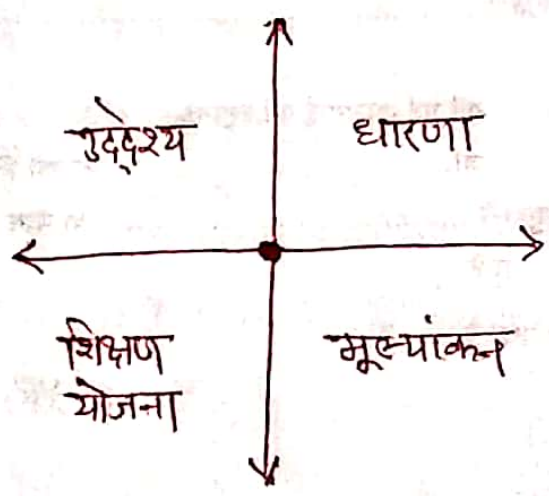 उद्देश्य
धारणा
शिक्षण
योजना
मूल्यांकन